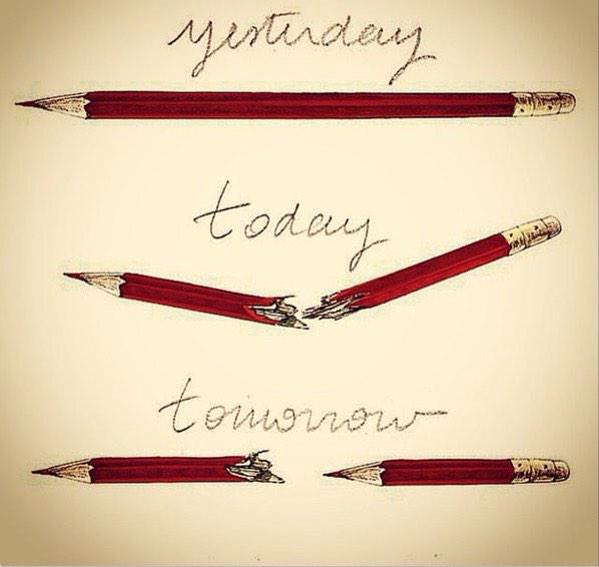 yesterday
today
tomorrow